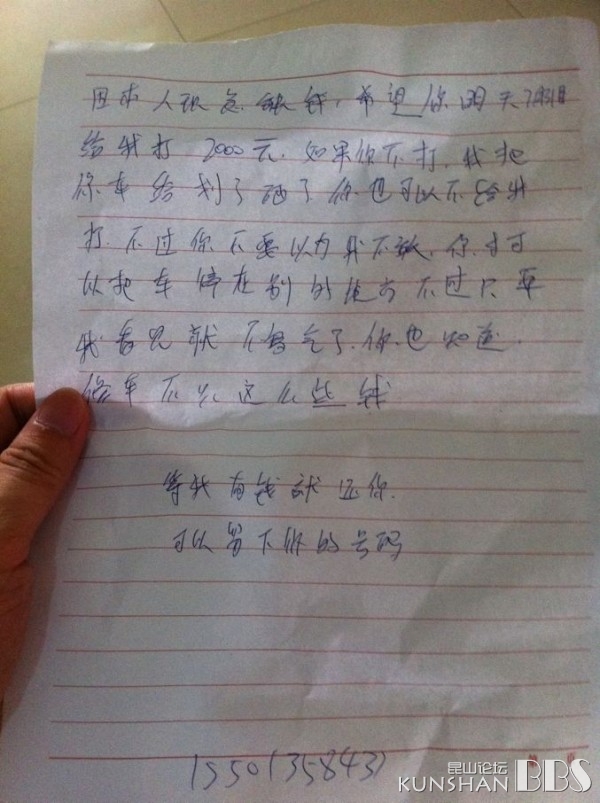 因本人现急缺钱，希望你明天7月31日
给我打 2000元. 如果你不打. 我把
你车给划了砸了 你也可以不给我
打. 不过你不要以为我不敢. 你才可
以把车停在别的地方 不过只要
我看见就不客气了. 你也知道.
修车不只这么些钱
等我有钱就还你.
可以留下你的号码
15501358431
昆山论坛
KUNSHAN BBS